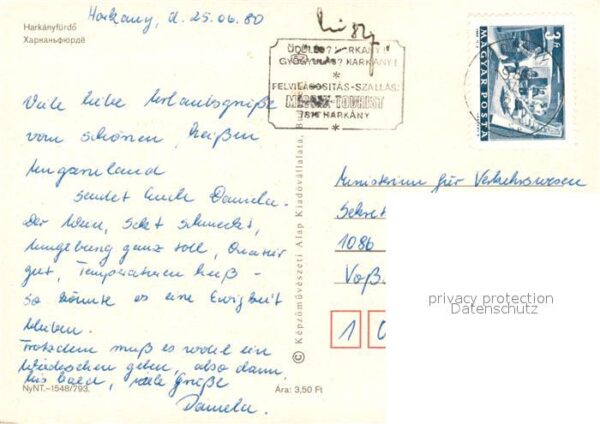 Harkányfürdő
Харканьфюрдё
Harkany, d. 25.06.80
ÜDÜLÉS? HARKÁNY!
GYÓGYULÁS? HARKÁNY!
*
FELVILÁGOSITÁS-SZÁLLÁS:
TOURIST
7815 HARKÁNY
*
3 Ft
MAGYAR POSTA
Viele liebe Urlaubsgrüße
vom schönen, heißen
Ungarnland
sendet Euch Daniela.
Der Wein, Sekt schmeckt,
Umgebung ganz toll, Quartier
gut, Temperaturen heiß -
so könnte es eine Ewigkeit
bleiben.
Trotzdem muß es wohl ein
geben, also dann,
bis bald, viele Grüße
Daniela.
NyNT.-1548/793.
Ára: 3,50 Ft
© Képzőművészeti Alap Kiadóvállalata,
Ministerium für Verkehrswesen
Sekret
1086
Voß
1 0
privacy protection
Datenschutz